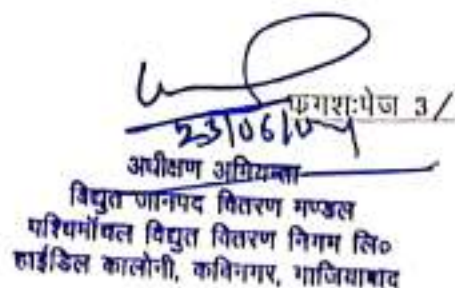 क्रमशःपेज 3/
23/06/04
अधीक्षण अभियन्ता
विद्युत जानपद वितरण मण्डल
पश्चिमॉचल विद्युत वितरण निगम लि०
हाईडिल कालोनी, कविनगर, गाजियाबाद